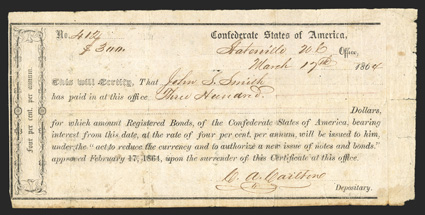 No. 414 Confederate States of America,
$ 300. Statesville N C Office,
March 17th 1864
four per cent. per annum.
This will Certify, That John T. Smith
has paid in at this office Three Hundred
Dollars,
for which amount Registered Bonds, of the Confederate States of America, bearing
interest from this date, at the rate of four per cent. per annum, will be issued to him,
under the "act to reduce the currency and to authorize a new issue of notes and bonds."
approved February 17, 1864, upon the surrender of this Certificate at this office.
C. A. Carlton
Depositary.